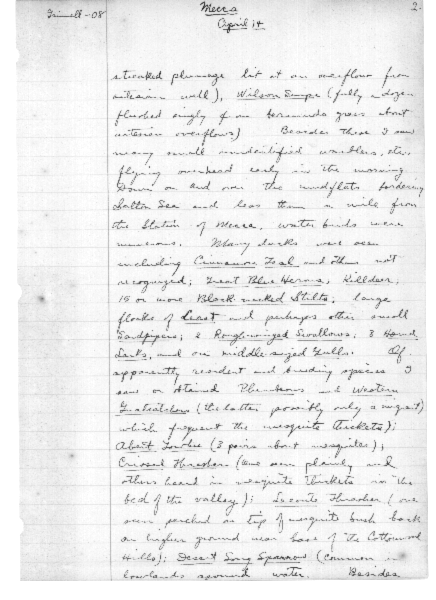 Grinnell - 08
Mecca
2.
April 14
streaked plumage lit at an overflow from
artesian well), Wilson Snipe (fully a dozen
flushed singly from bermuda grass about
artesian overflows) Besides these I saw
many small unidentified warblers, etc.
flying overhead early in the morning
Down on and over the mudflats bordering
Salton Sea and less than a mile from
the Station of Mecca, water birds were
numerous. Many ducks were seen
including Cinnamon Teal and others not
recognized; Great Blue Herons, Killdeer,
15 or more Black-necked Stilts, large
flocks of Least and perhaps other small
Sandpipers; 2 Rough-winged Swallows, 3 Horned
Larks, and one middle-sized Gulls. Of
apparently resident and breeding species I
saw or obtained Plumbeous and Western
Gnatcatchers (the latter possibly only a migrant)
which frequent the mesquite thickets);
Abert Towhee (3 pairs about mesquites);
Crissal Thrasher (one seen plainly and
others heard in mesquite thickets in the
bed of the valley); Leconte Thrasher (one
seen perched on top of mesquite bush back
on higher ground near base of the Cottonwood
Hills); Desert Song Sparrow (common in
lowlands around water. Besides